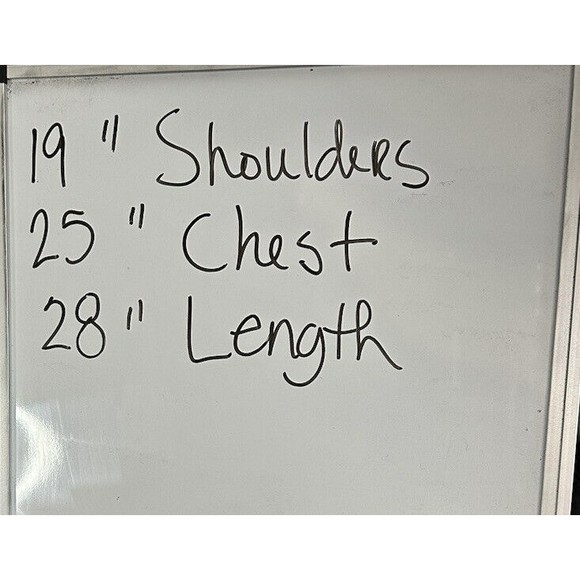 19 " Shoulders
25 " Chest
28 " Length